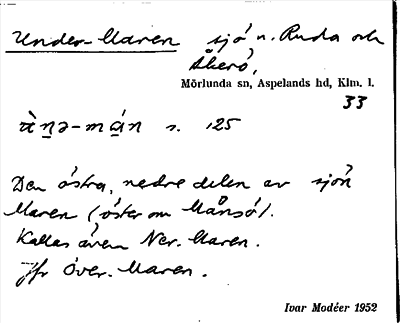 Under-Maren sjö n. Ruda och
Åkerö,
Mörlunda sn, Aspelands hd, Klm. l.
33
ùn̠ə-má̠n s. 125
Den östra, nedre delen av sjön
Maren (öster om Månsö).
Kallas även Ner-Maren.
Jfr Över-Maren.
Ivar Modéer 1952